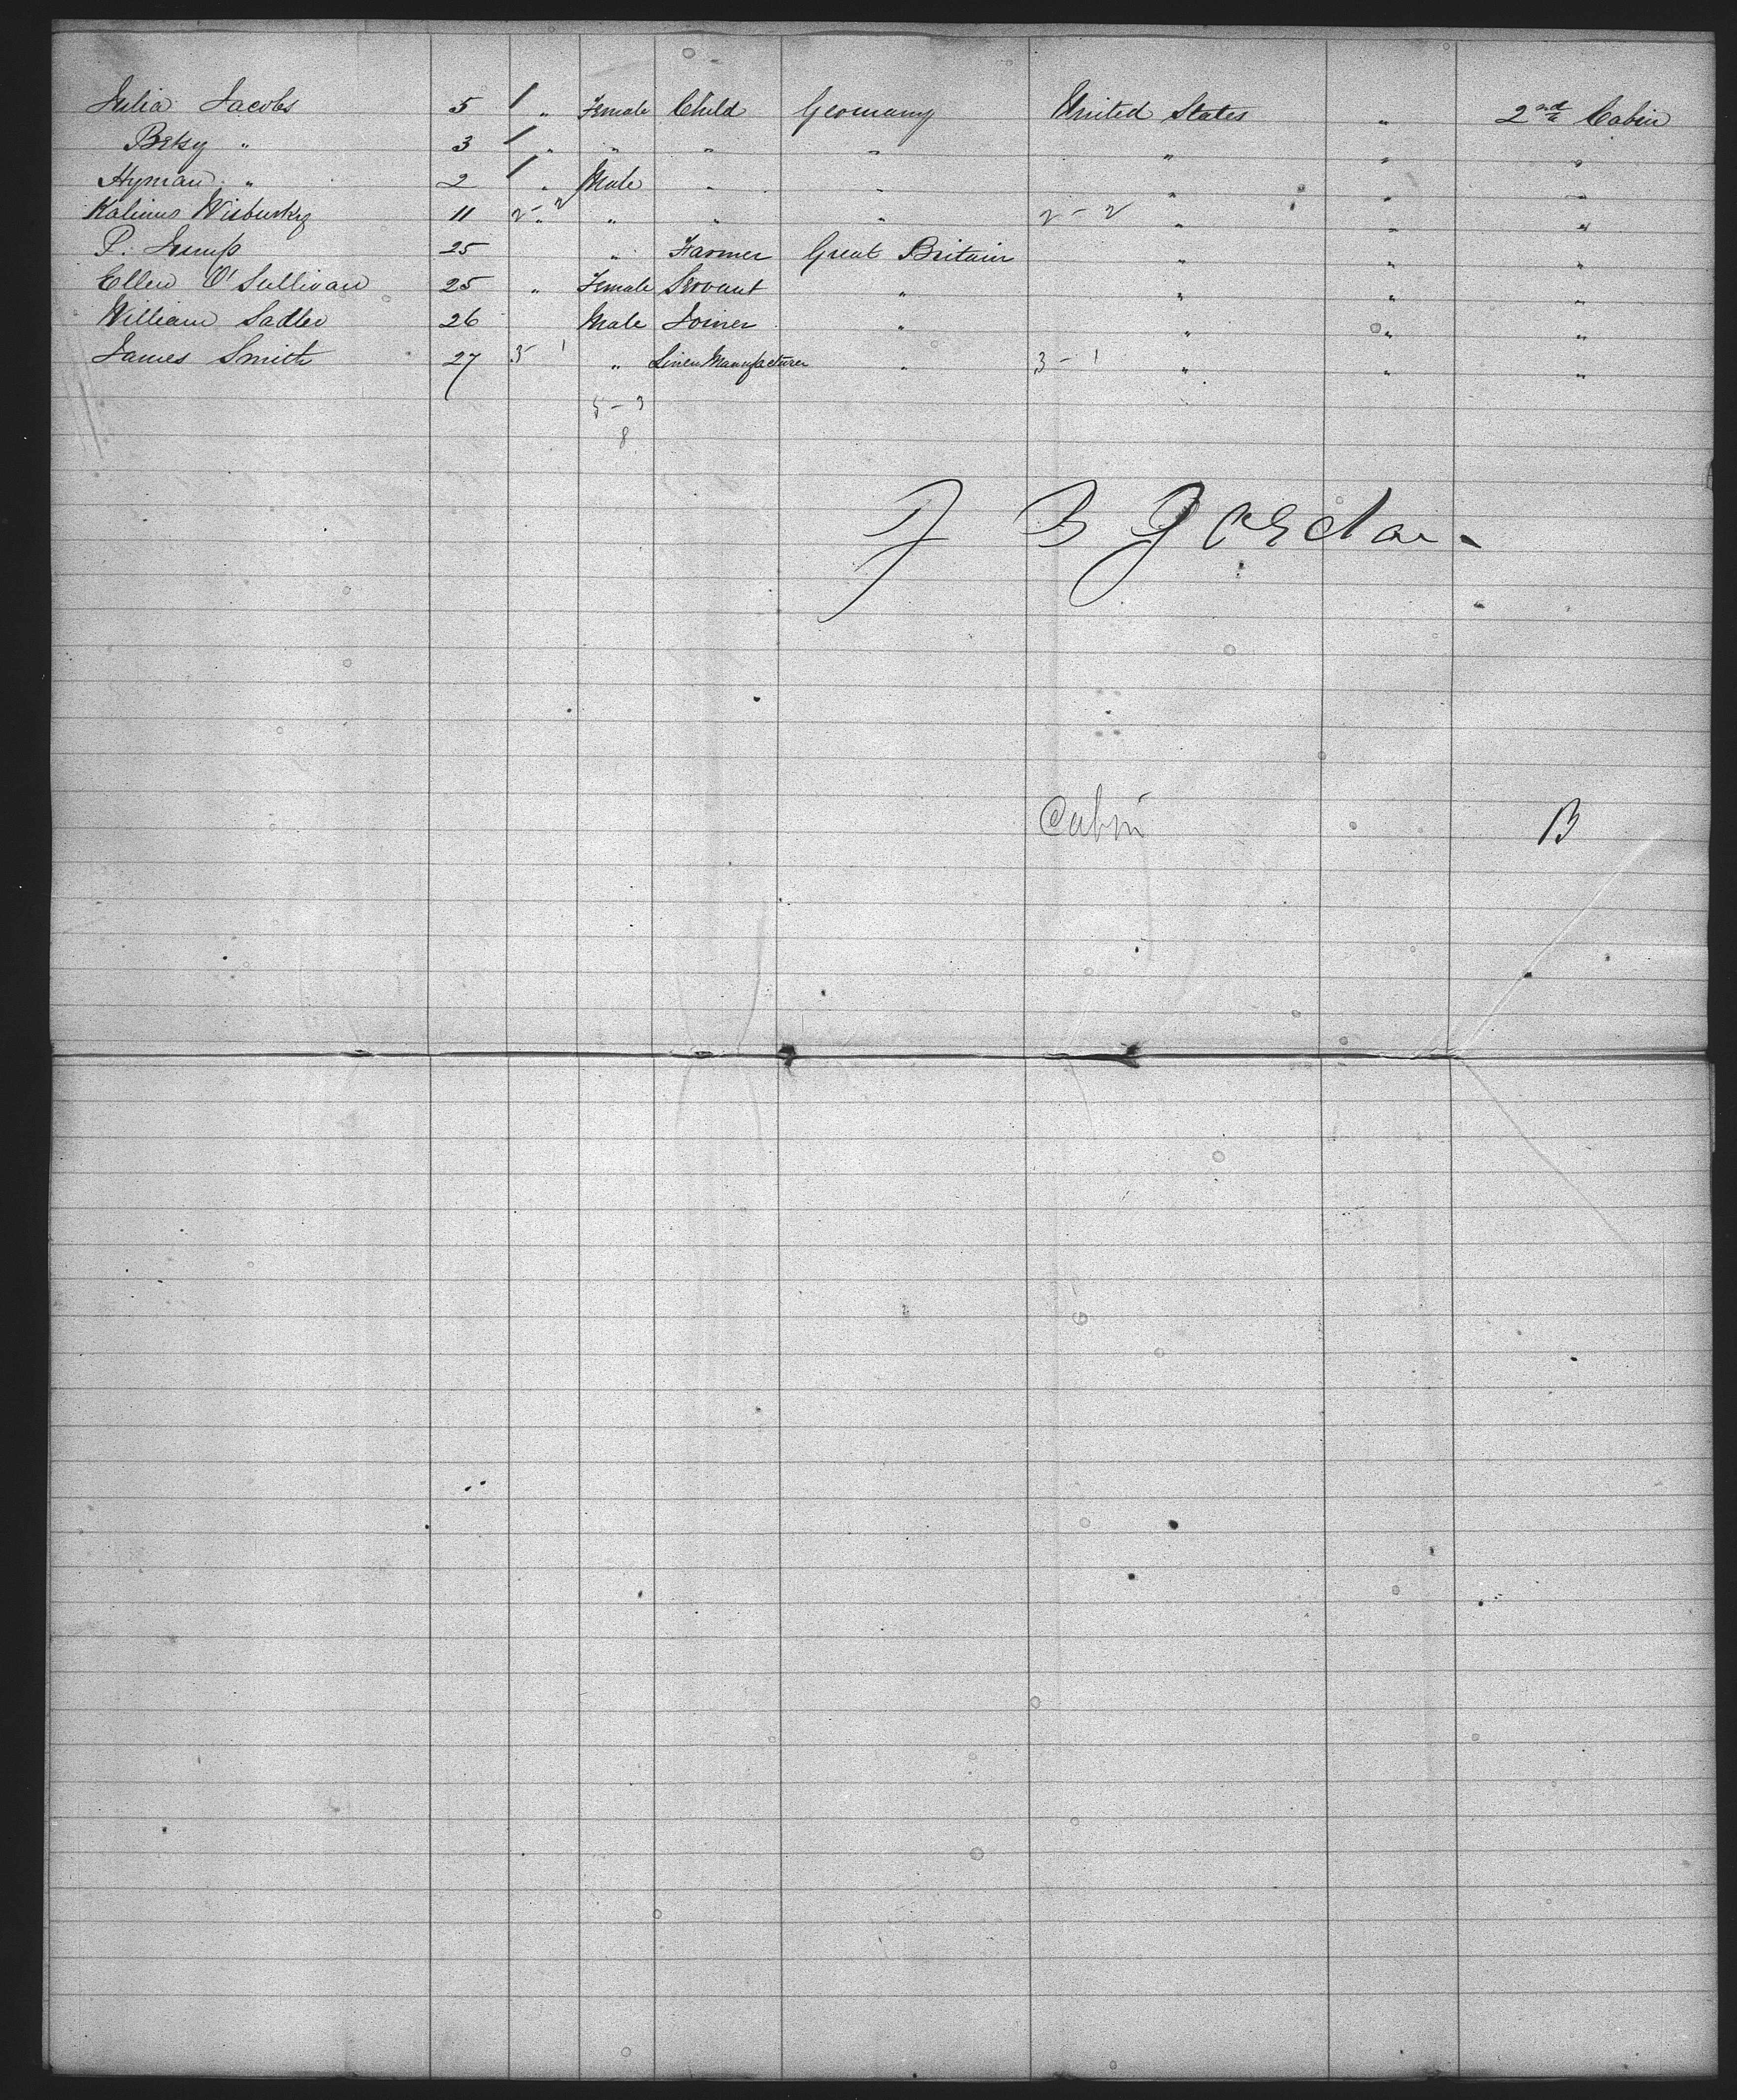 Julia Jacobs 5 / " Female Child Germany United States " 2nd Cabin
Betsy " 3 / " " " " " " "
Hyman " 2 / " Male " " " " "
Kalinus Wisbusky 11 2 - 2 " " " " 2 - 2 " " "
P. Jump 25 " Farmer Great Britain " " "
Ellen O'Sullivan 25 " Female Servant " " " "
William Sadler 26 Male Joiner " " " "
James Smith 27 3 1 " Linen Manufacturer " 3 - 1 " " "
5 - 3
8
J B Jordan
Cabin B